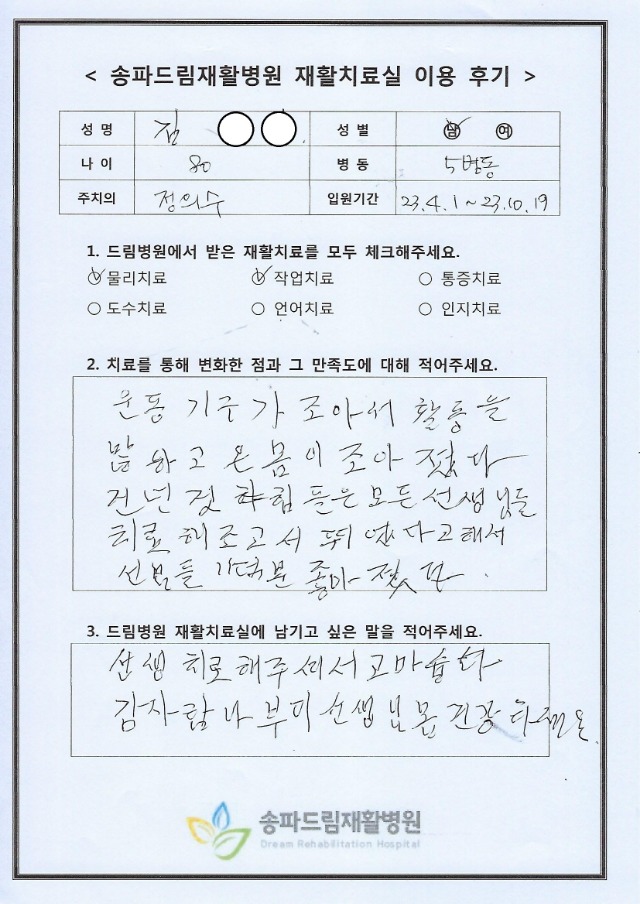 < 송파드림재활병원 재활치료실 이용 후기 >
성 명 김 성 별 남 여
나 이 80 병 동 5병동
주치의 정의수 입원기간 23.4.1~23.10.19
1. 드림병원에서 받은 재활치료를 모두 체크해주세요.
물리치료 작업치료 통증치료
도수치료 언어치료 인지치료
2. 치료를 통해 변화한 점과 그 만족도에 대해 적어주세요.
운동 기구가 조아서 활동을
많하고 온몸이 조아졌다
모든 선생님들
치료해조고서
좋아졌다.
3. 드림병원 재활치료실에 남기고 싶은 말을 적어주세요.
선생 치로해주셔서 고마습다
부디 선생님 몸
송파드림재활병원
Dream Rehabilitation Hospital